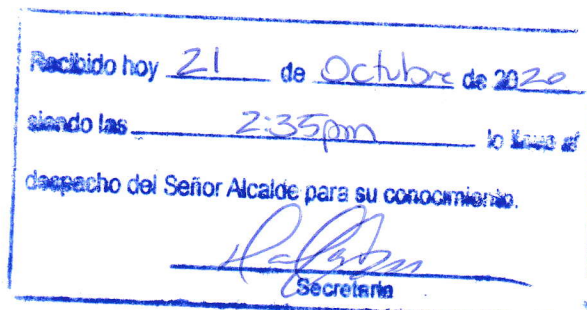 Recibido hoy 21 de Octubre de 2020
siendo las 2:35pm lo llevo al
despacho del Señor Alcalde para su conocimiento.
Secretaria